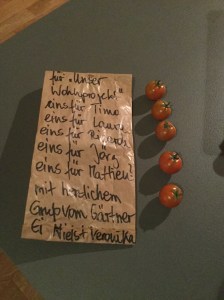 für "Unser
Wohnprojekt"
eins für Timo
eins für Laura
eins für Ricarda
eins für Jörg
eins für Mathieu!
mit herzlichem
Gruß vom Gärtner
Veronika